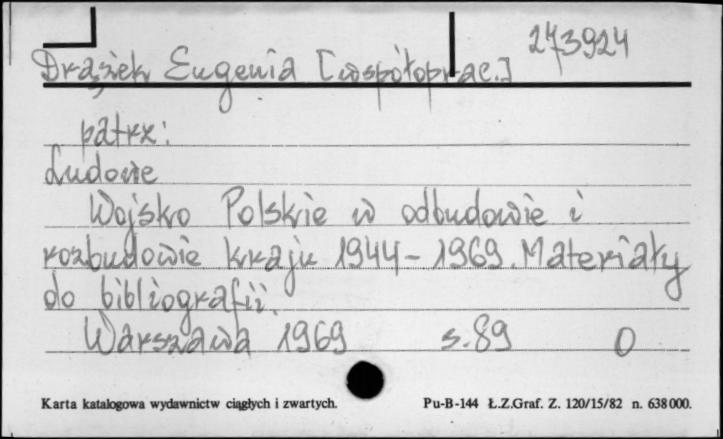 273924
Drążek Eugenia [współoprac.]
patrz:
Ludowe
Wojsko Polskie w odbudowie i
rozbudowie kraju 1944-1969. Materiały
do bibliografii.
Warszawa 1969 s.89 0
Karta katalogowa wydawnictw ciągłych i zwartych. Pu-B-144 Ł.Z.Graf. Z. 120/15/82 n. 638000.